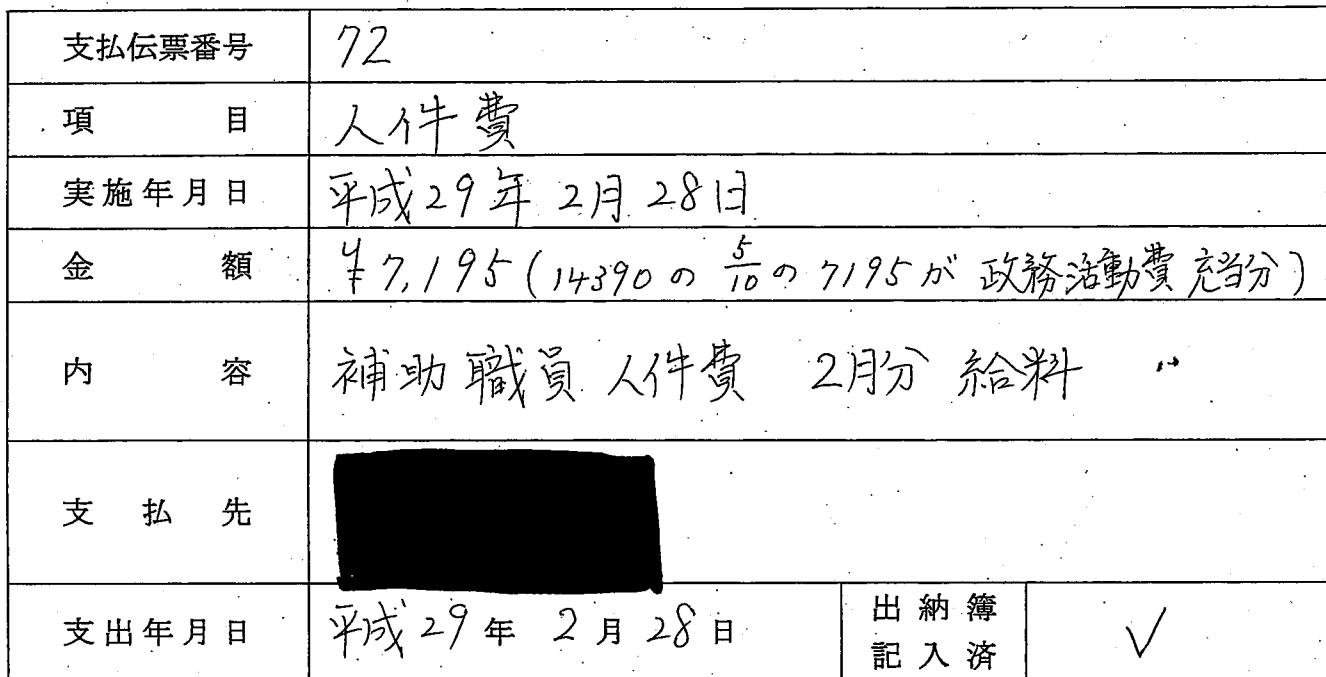 支払伝票番号 72
項目 人件費
実施年月日 平成29年 2月 28日
金額 ¥7,195(14390の 5/10の 7195が 政務活動費充当分)
内容 補助職員人件費 2月分 給料
支払先
支出年月日 平成29年 2月28日 出納簿記入済 ✓